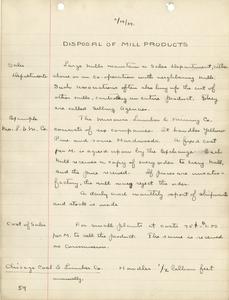 DISPOSAL OF MILL PRODUCTS
Sales Large Mills maintain a Sales Department, either
Department alone or in co-operation with neighboring Mills.
Such associations often buy up the cut of
other mills, controlling an entire product. They
are called Selling Agencies.
Example Missouri Lumber & Mining Co.
Mo. L & M. Co. consists of six companies. It handles Yellow
Pine and some Hardwoods. A fixed cost
per M. is agreed upon by the Exchange. Each
Mill receives a copy of every order to every Mill,
and the price received. If prices are unsatis-
factory, the mill may reject the order.
A daily and monthly report of shipments
and stock is made
Cost of Sales For small plants it costs
per M. to sell the product. The same is received
as Commission.
Chicago Coal & Lumber Co. Handles 1/2 billion feet
annually.
59